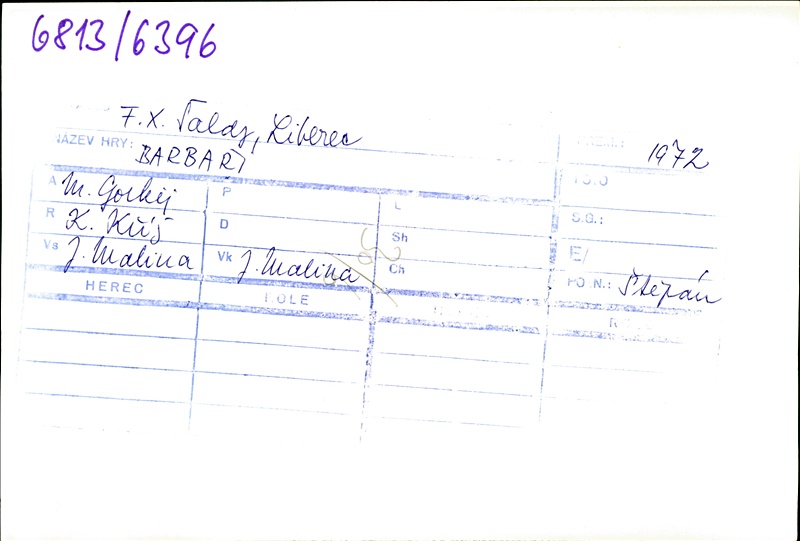 6813/6396
F.X. Šaldy, Liberec
NÁZEV HRY: BARBAŘI 1972
A M. Gorkij P L
R K. Kříž D Sh S.G.:
Vs J. Malina Vk J. Malina Ch E/
PO.N.: Štepán
HEREC ROLE